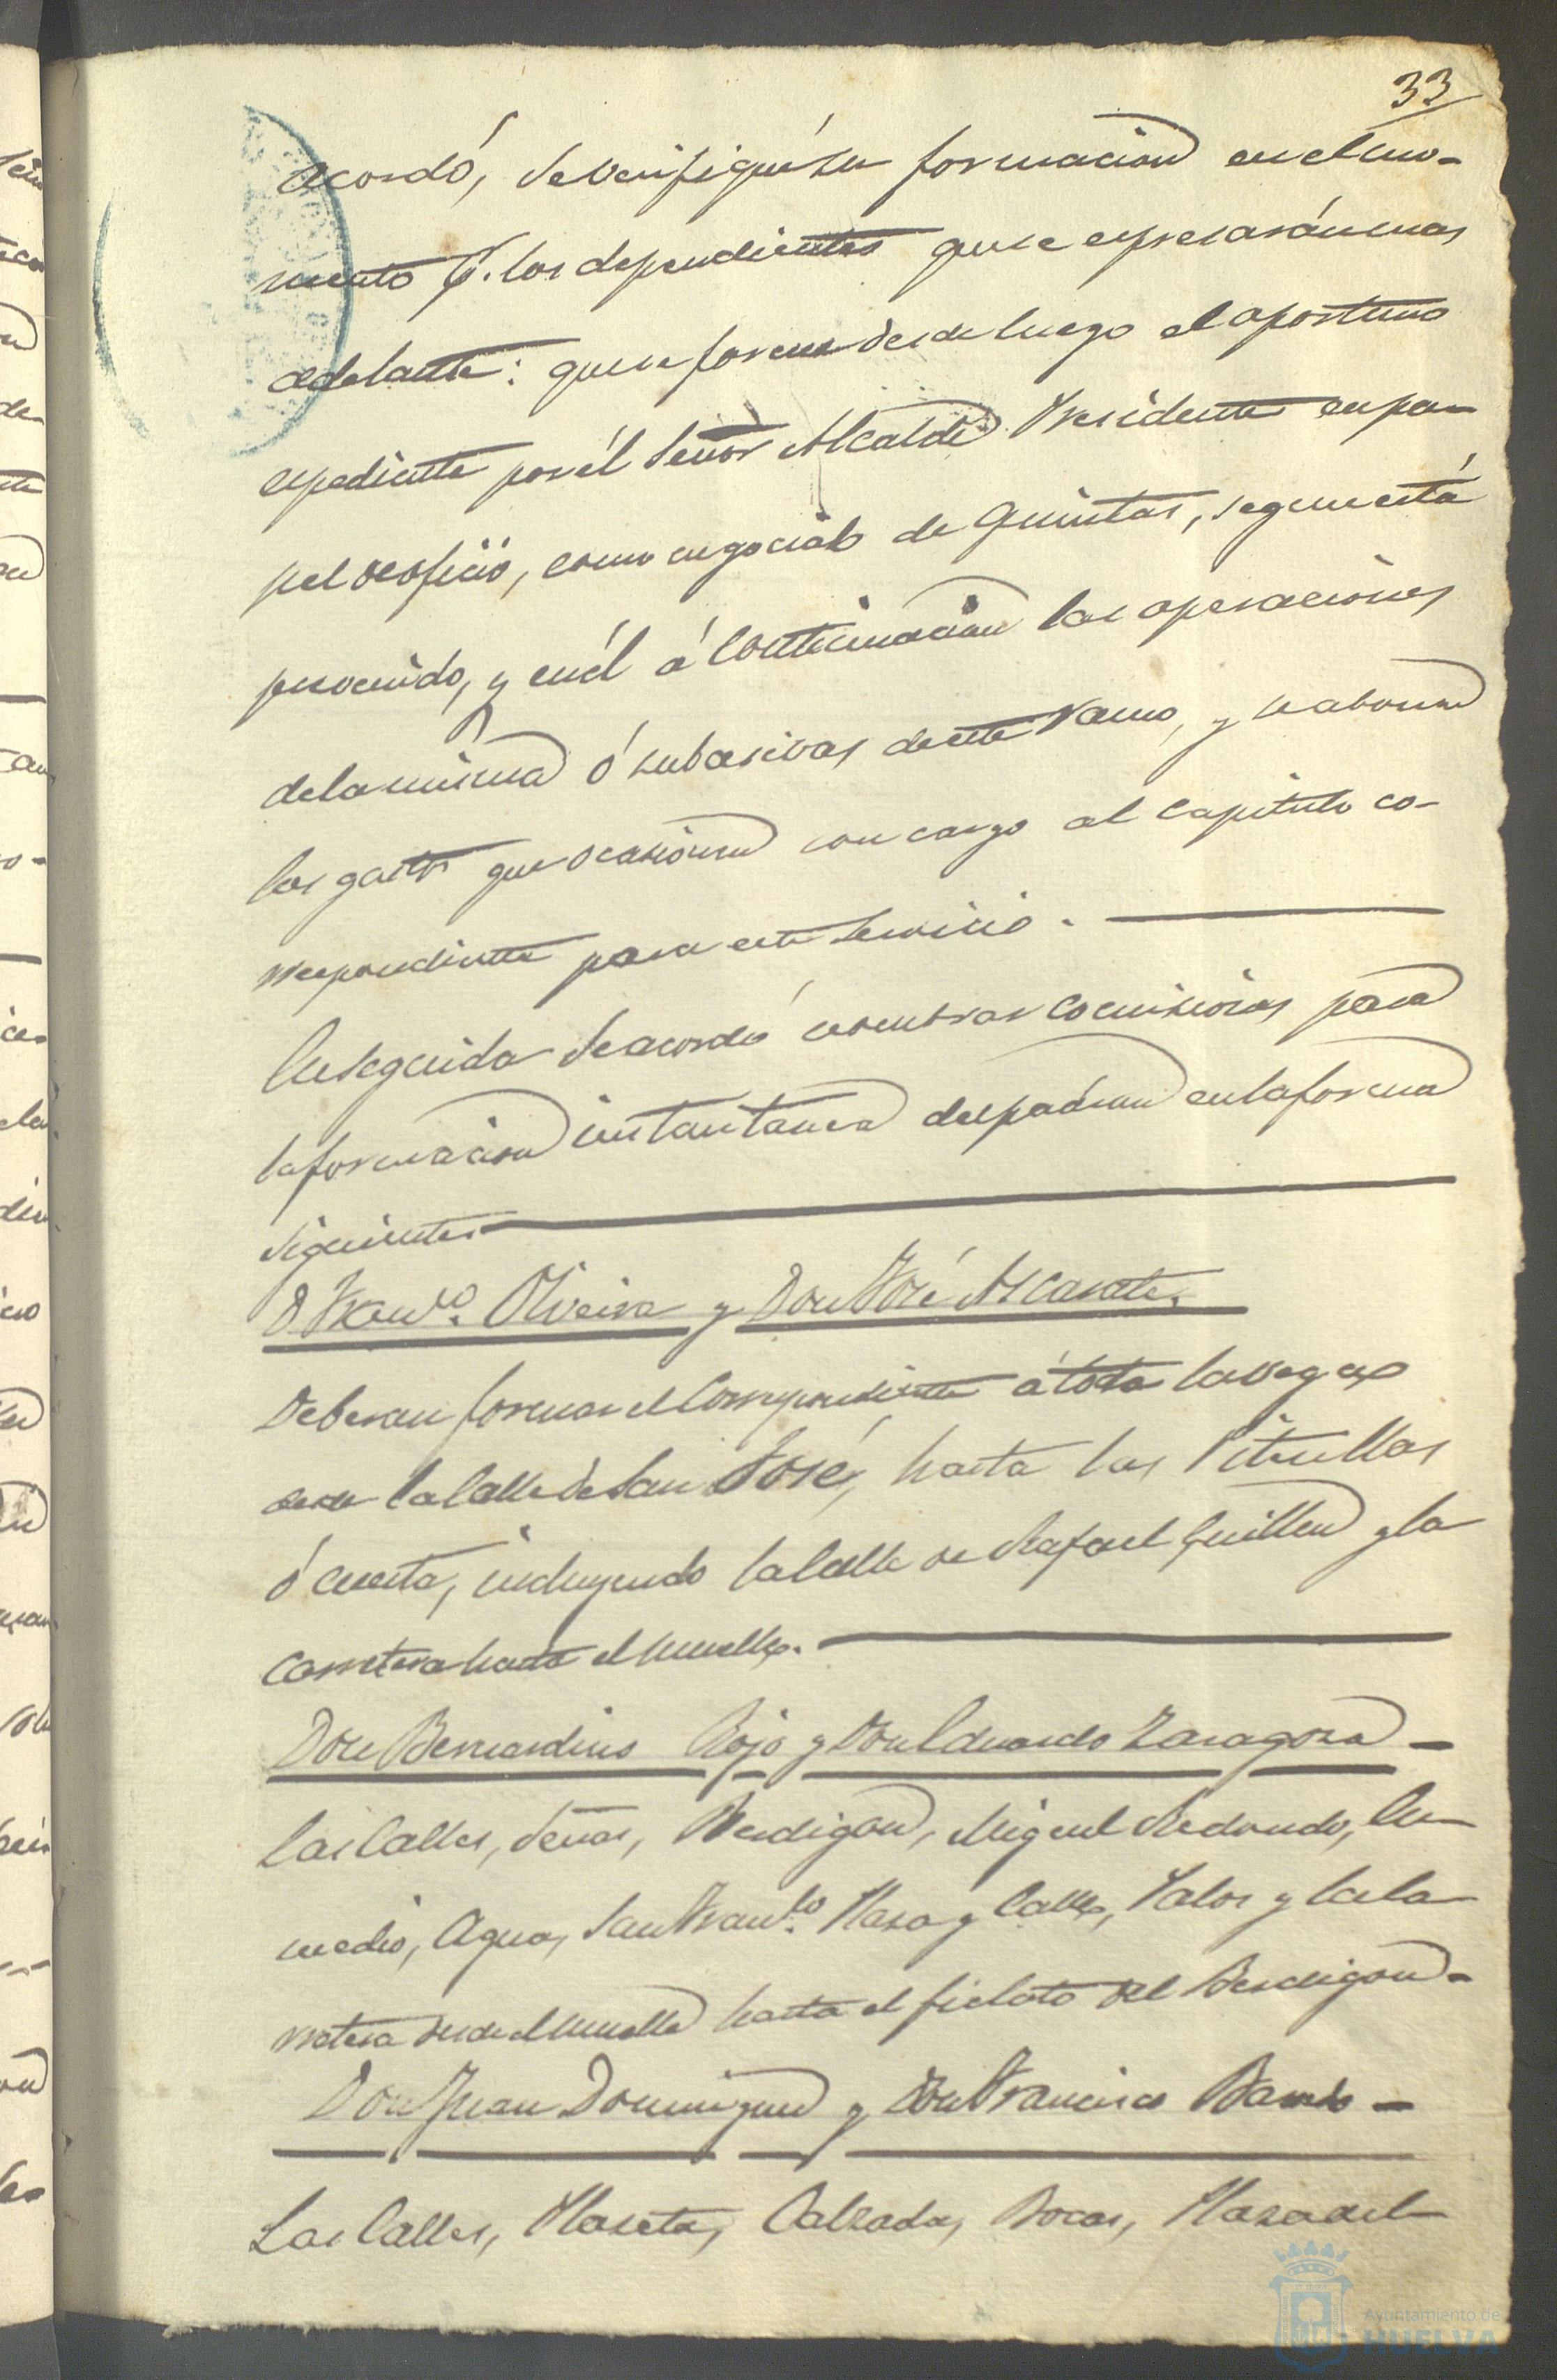 33
acordó, se verifique su formacion en el mo-
mento p.r los dependientes que se espresarán mas
adelante: que se forme desde luego el oportuno
espediente por él Señor Alcalde Presidente en pa-
pel de oficio, como negociado de Quintas, segun está
prevenido, y en él á continuacion las operaciones
de la misma ó subcesivas de este ramo, y se abonen
los gastos que ocasionen con cargo al capitulo co-
rrespondiente para este servicio.
Enseguida se acordó nombrar comisiones para
la formacion instantanea del padron en la forma
siguiente
D Fran.co Oliveira y Don José Alcarate.
Deberan formar el correspondiente á toda la Vega
desde la Calle de San José, hasta las
ó cuesta, incluyendo la Calle de Rafael Guillen y la
carretera hasta el Muelle.
Don Bernardino Rojo y Don Eduardo Zaragoza
Las Calles, Señas, Berdigon, Miguel Redondo, En-
medio, Agua, San Fran.co Plaza y Calle, Palos y la Ca-
rretera desde el Muelle hasta el fielato del Berdigon
Don Juan Dominguez y Don Francisco Barrio
Las Calles, Placeta, Calzada, Bocas, Plaza del
Ayuntamiento de
HUELVA